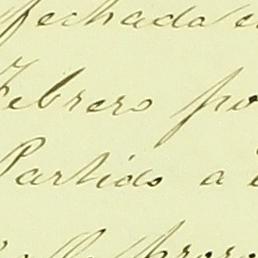 fechada e
Febrero po
Partido a